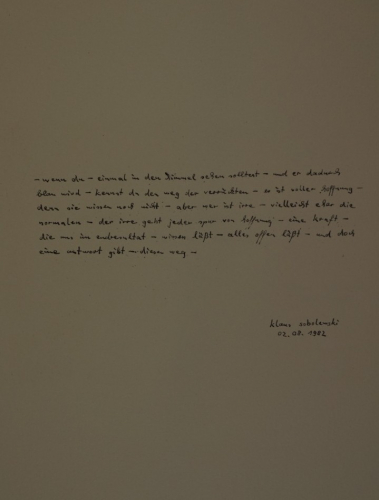 – wenn du – einmal in den Himmel sehen solltest – und er dadurch
blau wird – kennst du den weg der verrückten – er ist voller hoffnung –
denn sie wissen noch nicht – aber wer ist irre – vielleicht eher die
normalen – der irre geht jeder spur von hoffnung – eine kraft –
die uns im – wissen läßt – alles offen läßt – und doch
eine antwort gibt – diesen weg –
klaus
02.08.1982